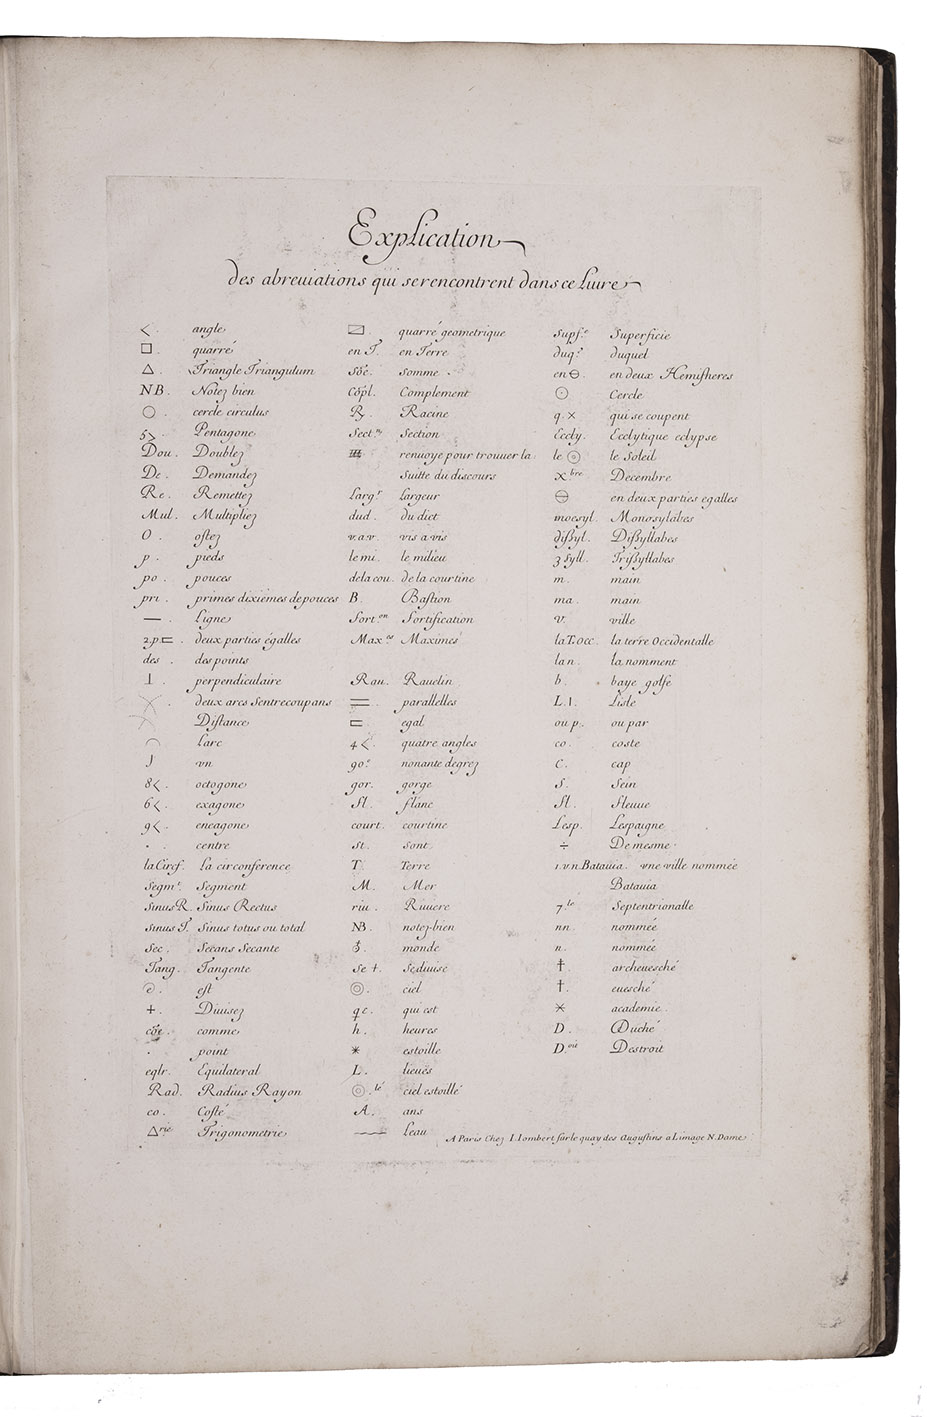 Explication
des abreuiations qui se rencontrent dans ce Liure
< . angle
□ . quarré
△ . Triangle Triangulum
NB . Notez bien
○ . cercle circulus
5> . Pentagone
Dou . Doublez
De . Demandez
Re . Remettez
Mul . Multipliez
O . ostez
p . pieds
po . pouces
pri . primes dixiémes de pouces
— . Ligne
2.p.⊏ . deux parties égalles
des . des points
⊥ . perpendiculaire
deux arcs sentrecoupans
Distance
Larc
) vn
8< . octogone
6< . exagone
9< . eneagone
. . centre
la Circf. La circonference
Segmt. Segment
sinus R. Sinus Rectus
sinus T. Sinus totus ou total
Sec . Secans Secante
Tang . Tangente
est
+ . Diuisez
cõe . comme
. point
eqlr . Equilateral
Rad. Radius Rayon
co . Costé
△rie Trigonometrie
quarré geometrique
en T. en Terre
Sõe. somme .
Cõpl. Complement
R . Racine
Sect.n Section
renuoye pour trouuer la
suitte du discours
Larg.r Largeur
dud . du dict
v.a.v. vis a vis
le mi. le milieu
de la cou . de la courtine
B . Bastion
Fort.on Fortification
Max.es Maximes
Rau. Rauelin
= parallelles
⊏ . egal
4<. quatre angles
90.e nonante degrez
gor. gorge
fl. flanc
court. courtine
st. Sont
T. Terre
M. Mer
riu . Riuiere
NB . notez-bien
♁ . monde
Se + . Se diuise
◎ . ciel
q.e . qui est
h. heures
* estoille
L . lieuës
◎ .lé ciel estoillé
A. ans
Leau
Supf.e Superficie
duq.l duquel
en ⊖ . en deux Hemispheres
⊙ Cercle
q. × qui se coupent
Eccly. Ecclytique eclypse
le ⊙ . le Soleil
x bre Decembre
⊖ en deux parties egalles
moesyl. Monosylabes
dißyl. Dißyllabes
3 Syll. Trißyllabes
m. main
ma . main
V. ville
la T.Occ. la terre Occidentalle
lan . la nomment
b. baye golfe
L.I. Lisle
ou p. ou par
co . coste
C. cap
S. Sein
fl. fleuue
Lesp. Lespaigne
÷ De mesme .
1.v.n.Batauia. vne ville nommée
Batauia
7.le Septentrionalle
nn. nommée
n. nommée
‡ . archeuesché
† . euesché
* academie .
D . Duché
D.oit Destroit
A Paris Chez I. Iombert sur le quay des Augustins a Limage N. Dame